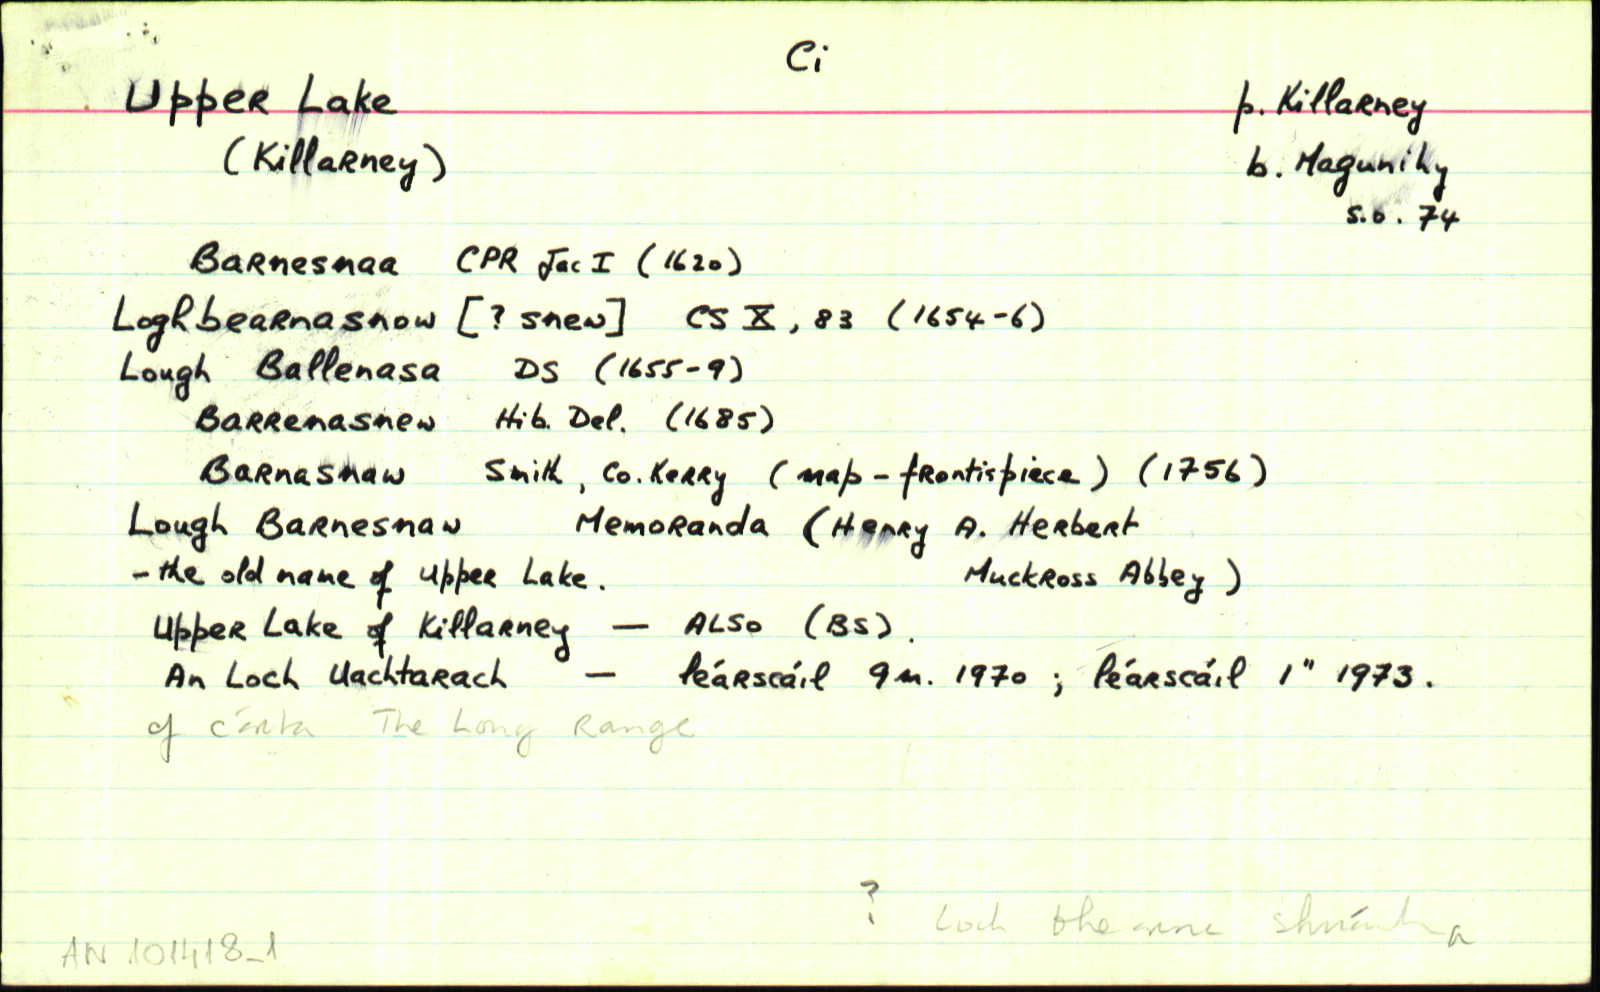 Ci
Upper Lake
(Killarney)
p. Killarney
b. Magunihy
s.o. 74
Barnesnaa CPR Jac I (1620)
Loghbearnasnow [? snew] CS X, 83 (1654-6)
Lough Ballenasa DS (1655-9)
Barrenasnew Hib. Del. (1685)
Barnasnaw Smith, Co. Kerry (map - frontispiece) (1756)
Lough Barnesnaw Memoranda (Henry A. Herbert
- the old name of Upper Lake. Muckross Abbey)
Upper Lake of Killarney — ALSO (BS).
An Loch Uachtarach — léarscáil 9m. 1970 ; léarscáil 1" 1973.
cf cárta The Long Range
? Loch Bhearna
AN 101418_1